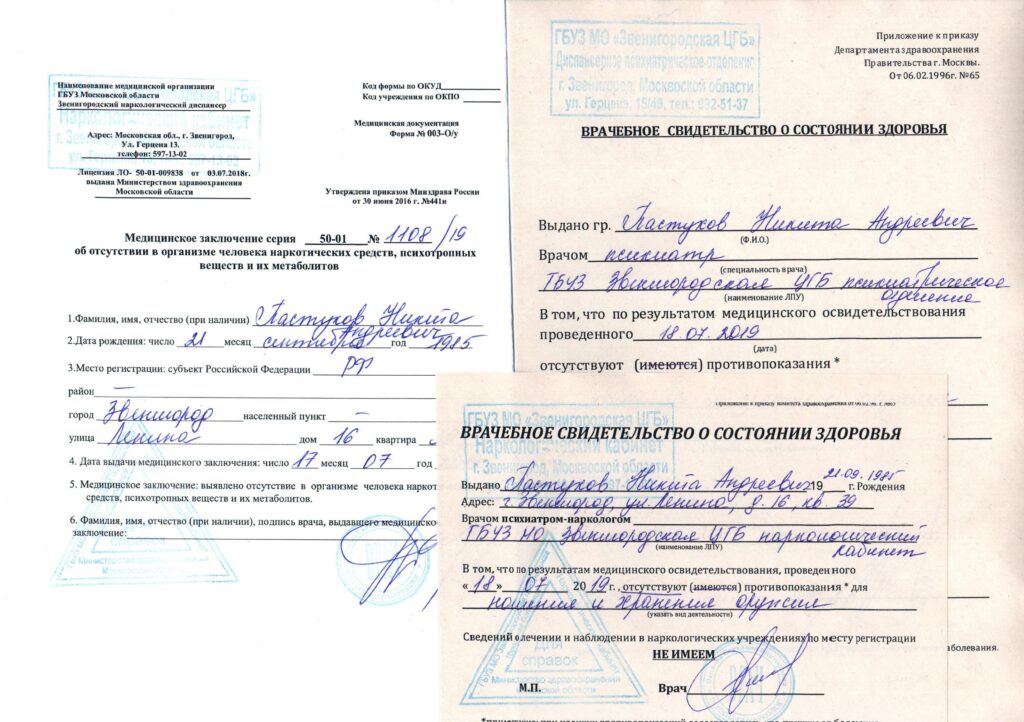 ГБУЗ МО «Звенигородская ЦГБ»
Наркологический кабинет
Наименование медицинской организации
ГБУЗ Московской области
Звенигородский наркологический диспансер
Адрес: Московская обл., г. Звенигород,
Ул. Герцена 13.
телефон: 597-13-02
Лицензия ЛО- 50-01-009838 от 03.07.2018г.
выдана Министерством здравоохранения
Московской области
Код формы по ОКУД
Код учреждения по ОКПО
Медицинская документация
Форма № 003-О/у
Утверждена приказом Минздрава России
от 30 июня 2016 г. №441н
Медицинское заключение серия 50-01 № 1108/19
об отсутствии в организме человека наркотических средств, психотропных
веществ и их метаболитов
1.Фамилия, имя, отчество (при наличии) Пастухов Никита
Андреевич
2.Дата рождения: число 21 месяц сентября год 1985
3.Место регистрации: субъект Российской Федерации РФ
район —
город Звенигород населенный пункт —
улица Ленина дом 16 квартира
4. Дата выдачи медицинского заключения: число 17 месяц 07 год
5. Медицинское заключение: выявлено отсутствие в организме человека
средств, психотропных веществ и их метаболитов.
6. Фамилия, имя, отчество (при наличии), подпись врача, выдавшего
заключение:
ГБУЗ МО «Звенигородская ЦГБ»
Диспансерное психиатрическое отделение
г. Звенигород, Московской области
ул. Герцена, 15/49, тел.: 992-51-37
Приложение к приказу
Департамента здравоохранения
Правительства г. Москвы.
От 06.02.1996г. №65
ВРАЧЕБНОЕ СВИДЕТЕЛЬСТВО О СОСТОЯНИИ ЗДОРОВЬЯ
Выдано гр. Пастухов Никита Андреевич
(Ф.И.О.)
Врачом психиатр
(специальность врача)
ГБУЗ Звенигородская ЦГБ психиатрическое
отделение
(наименование ЛПУ)
В том, что по результатом медицинского освидетельствования
проведенного 18.07.2019
(дата)
отсутствуют (имеются) противопоказания *
заболевания.
Приложение к приказу комитета здравоохранения от
ГБУЗ МО «Звенигородская ЦГБ»
Наркологический кабинет
г. Звенигород, Московской области
ВРАЧЕБНОЕ СВИДЕТЕЛЬСТВО О СОСТОЯНИИ ЗДОРОВЬЯ
Выдано Пастухов Никита Андреевич 19 21.09.1985 г. Рождения
Адрес: г. Звенигород, ул. Ленина, д. 16, кв. 39
Врачом психиатром-наркологом
ГБУЗ МО Звенигородская ЦГБ наркологический
кабинет
(наименование ЛПУ)
В том, что по результатам медицинского освидетельствования, проведенного
«18» 07 2019г., отсутствуют (имеются) противопоказания * для
ношения и хранения оружия
(указать вид деятельности)
Сведений о лечении и наблюдении в наркологических учреждениях по месту регистрации
НЕ ИМЕЕМ
для
справок
Министерство здравоохранения
Московской области
М.П. Врач